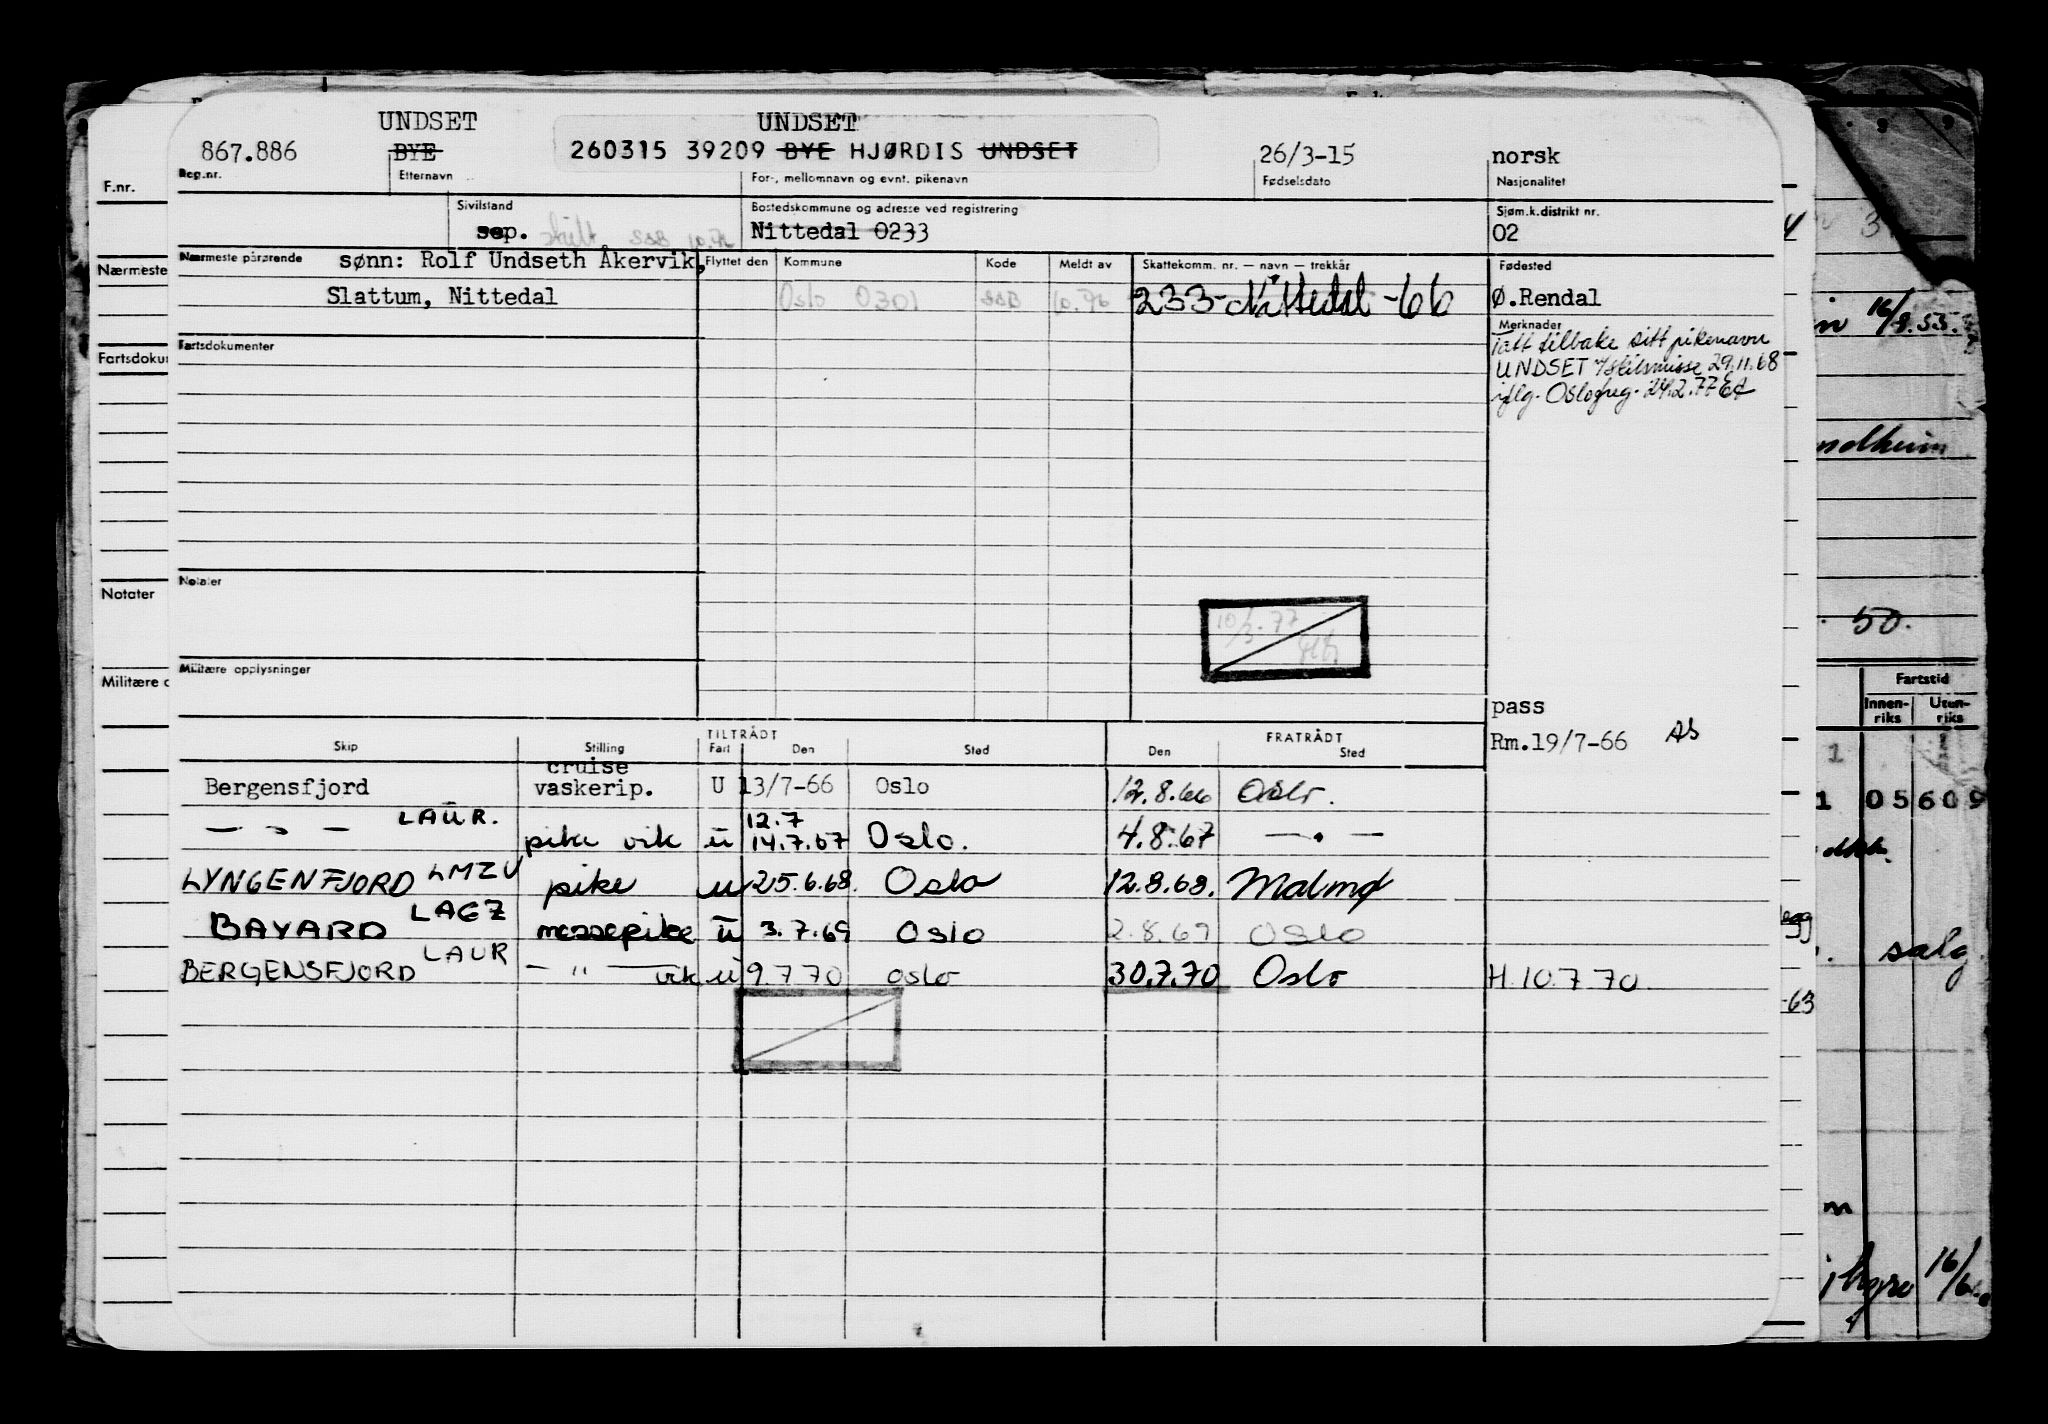 UNDSET UNDSET
867.886 BYE 260315 39209 BYE HJØRDIS UNDSET 26/3-15 norsk
F.nr. Reg.nr. Etternavn For-, mellomnavn og evnt. pikenavn Fødselsdato Nasjonalitet
Sivilstand Bostedskommune og adresse ved registrering Sjøm.k.distrikt nr.
sep. skilt SSB 10.76 Nittedal 0233 02
Nærmeste Nærmeste pårørende sønn: Rolf Undseth Åkervik, Flyttet den Kommune Kode Meldt av Skattekomm. nr. — navn — trekkår Fødested
Slattum, Nittedal Oslo 0301 SSB 10.76 233-Nittedal-66 Ø.Rendal
Merknader
Tatt tilbake sitt pikenavn
UNDSET 29.11.68
iflg. 24.2.77
Fartsdoku Fartsdokumenter
16/9.53.
ndheim
Notater Notater
10/3.77
50.
Militære o Militære opplysninger
Fartstid
Innenriks Utenriks
pass
Rm.19/7-66 AS
TILTRÅDT FRATRÅDT
Skip Stilling Fart Den Sted Den Sted
cruise
Bergensfjord vaskerip. U 13/7-66 Oslo 12.8.66 Oslo.
1 05609
12.7
— " — LAUR. pike vik u 14.7.67 Oslo. 4.8.67 — " —
LYNGENFJORD LMZV pike u 25.6.68. Oslo 12.8.68. Malmø
BAYARD LAGZ messepike u 3.7.69 Oslo 2.8.69 Oslo
BERGENSFJORD LAUR — " — vik u 9.7.70 Oslo 30.7.70 Oslo H.10.7.70.
salg.
-63
16/6